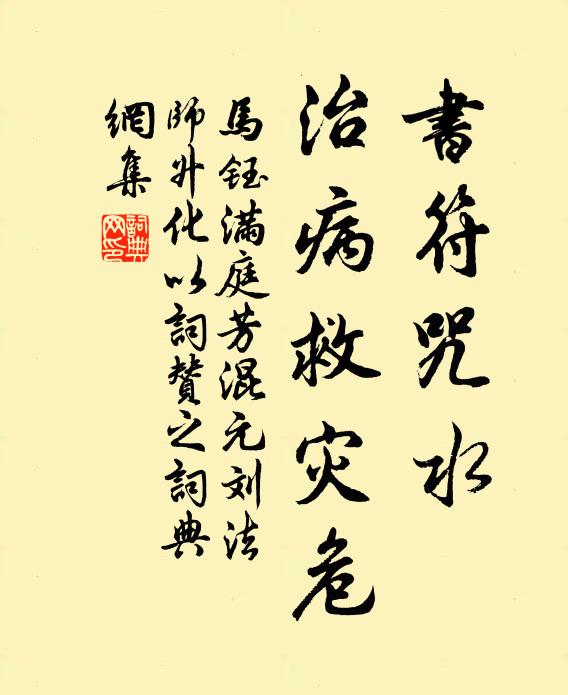 書符咒水
治病救灾危
馬鈺满庭芳混元刘法
師升化以詞贊之詞典
網集
詞典网印